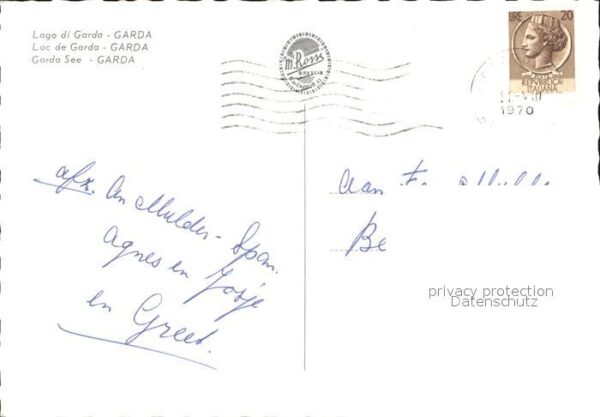 Lago di Garda - GARDA
Lac de Garda - GARDA
Garda See - GARDA
m. Ross
BRESCIA
LIRE 20
REPUBBLICA
ITALIANA
-VIII
1970
afz. An Mulder - Span.
Agnes en Josje
en Greet.
Aan F.
Be
privacy protection
Datenschutz